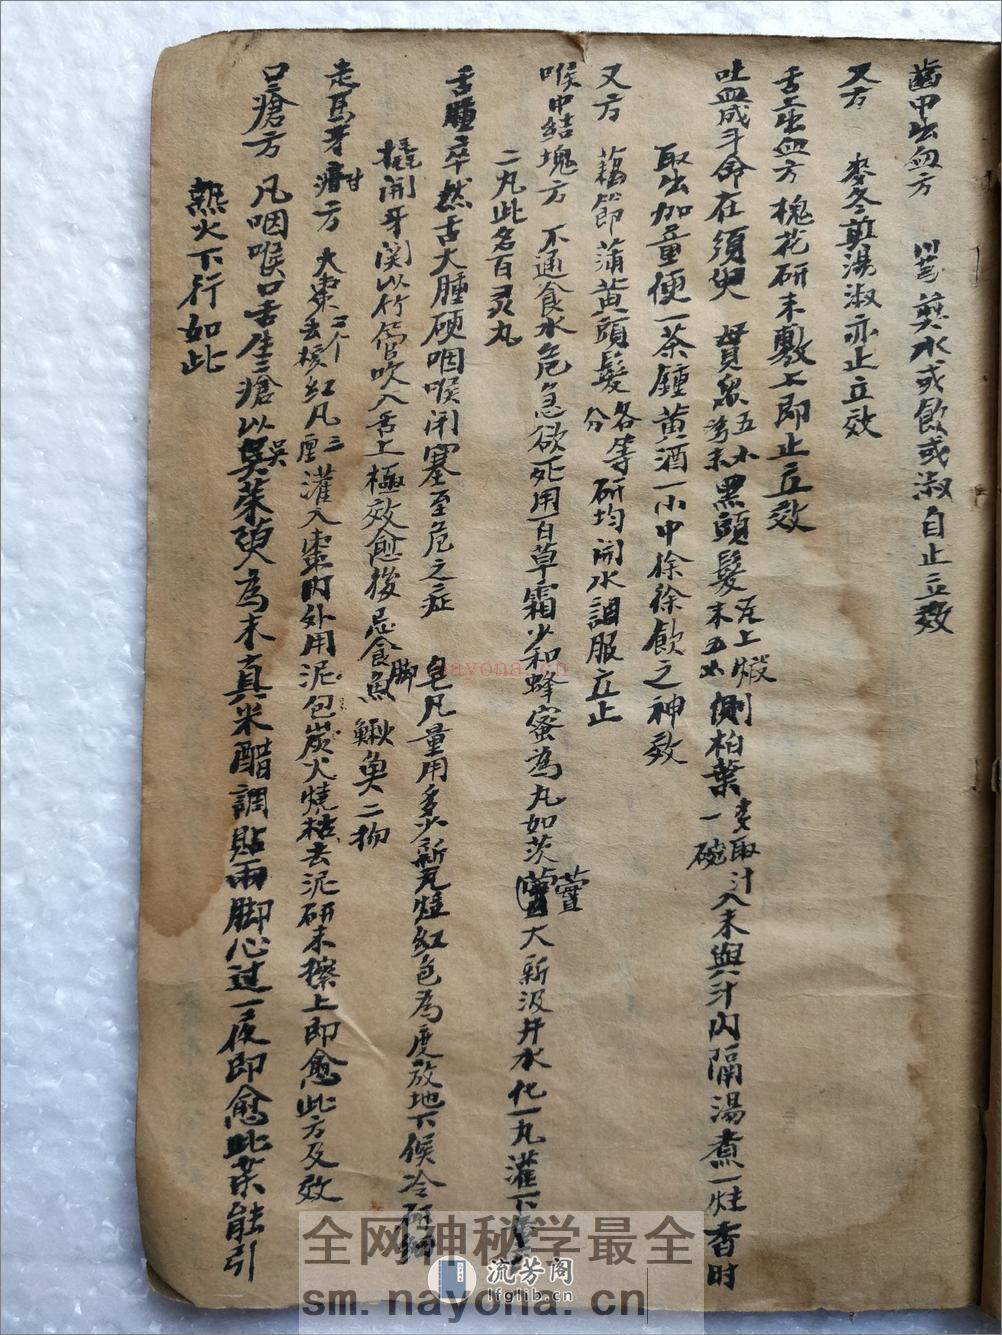 齒中出血方 川芎煎水或飲或漱自止立效
又方 麥冬煎湯漱亦止立效
舌上出血方 槐花研末敷上即止立效
吐血成斗命在須臾 貫衆五小湾末黑頭髮瓦上煅末五小側柏葉麦取汁一碗入末與汁內隔湯煮一炷香時
取出加童便一茶鍾黃酒一小中徐徐飲之神效
又方 藕節蒲黃頭髮各等分研均開水調服立止
喉中結塊方 不通食水危急欲死用百草霜少和蜂蜜為丸如茨大新汲井水化一丸灌下
二丸此名百灵丸
舌腫卒然舌大腫硬咽喉闭塞至危之症 皂凡量用多少新瓦煅紅色為度放地下候冷研細
撬開牙関以竹管吹入舌上極效愈後忌食魚脚鰍魚二物
走馬牙疳方 大棗去核紅凡三厘灌入棗內外用泥包炭火燒枯去泥研末擦上即愈此方及效
口瘡方 凡咽喉口舌生瘡以吴茱萸為末真米醋調貼兩脚心过一夜即愈此葯能引
熱火下行如此
全网神秘学最全
sm.nayona.cn
流芳阁
lfglib.cn
nayona.cn